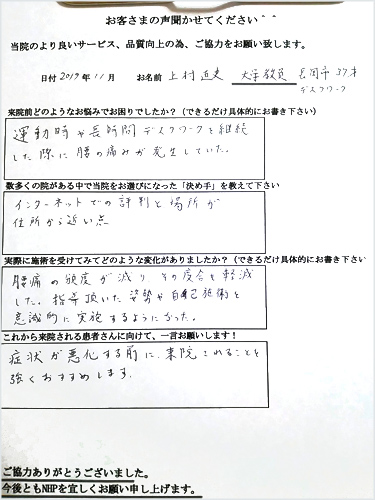 お客さまの声聞かせてください＾＾
当院のより良いサービス、品質向上の為、ご協力をお願い致します。
日付 2019年11月 お名前 上村 大学教員 長岡市 37才
デスクワーク
来院前どのようなお悩みでお困りでしたか？（できるだけ具体的にお書き下さい）
運動時や長時間デスクワークを継続
した際に腰の痛みが発生していた。
数多くの院がある中で当院をお選びになった「決め手」を教えて下さい
インターネットでの評判と場所が
住所から近い点
実際に施術を受けてみてどのような変化がありましたか？（できるだけ具体的にお書き下さい
腰痛の頻度が減り その度合も軽減
した。指導頂いた姿勢や自己施術を
意識的に実施するようになった。
これから来院される患者さんに向けて、一言お願いします！
症状が悪化する前に、来院されることを
強くおすすめします。
ご協力ありがとうございました。
今後ともNHPを宜しくお願い申し上げます。